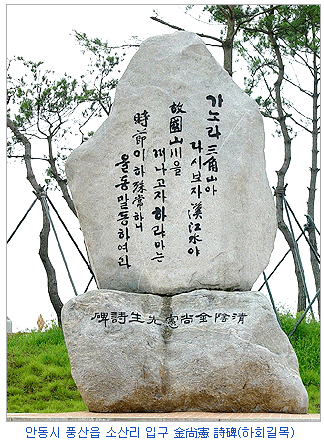 가노라 三角山아
다시보자 漢江水야
故國山川을
떠나고자 하랴마는
時節이 하 殊常하니
올동말동하여라
淸陰金尙憲先生詩碑
안동시 풍산읍 소산리 입구 金尙憲 詩碑(하회길목)